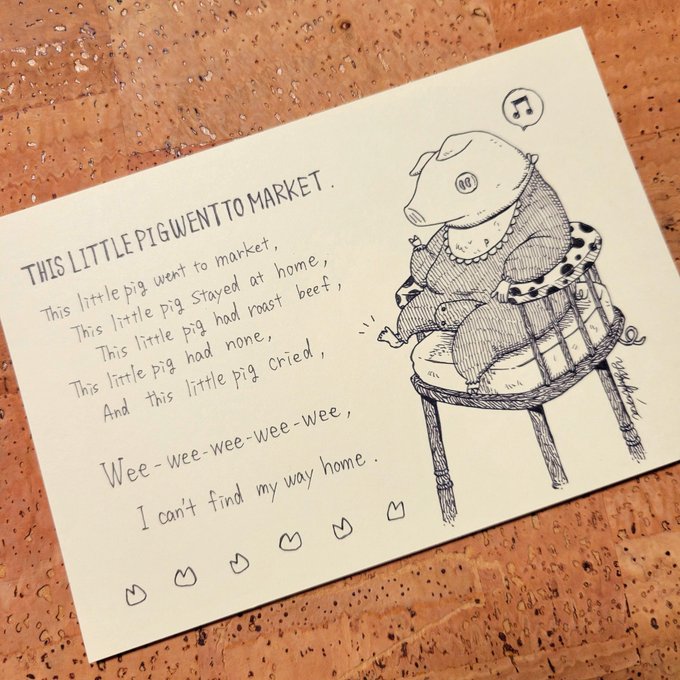 THIS LITTLE PIG WENT TO MARKET.
This little pig went to market,
This little pig stayed at home,
This little pig had roast beef,
This little pig had none,
And this little pig cried,
Wee-wee-wee-wee-wee,
I can't find my way home.